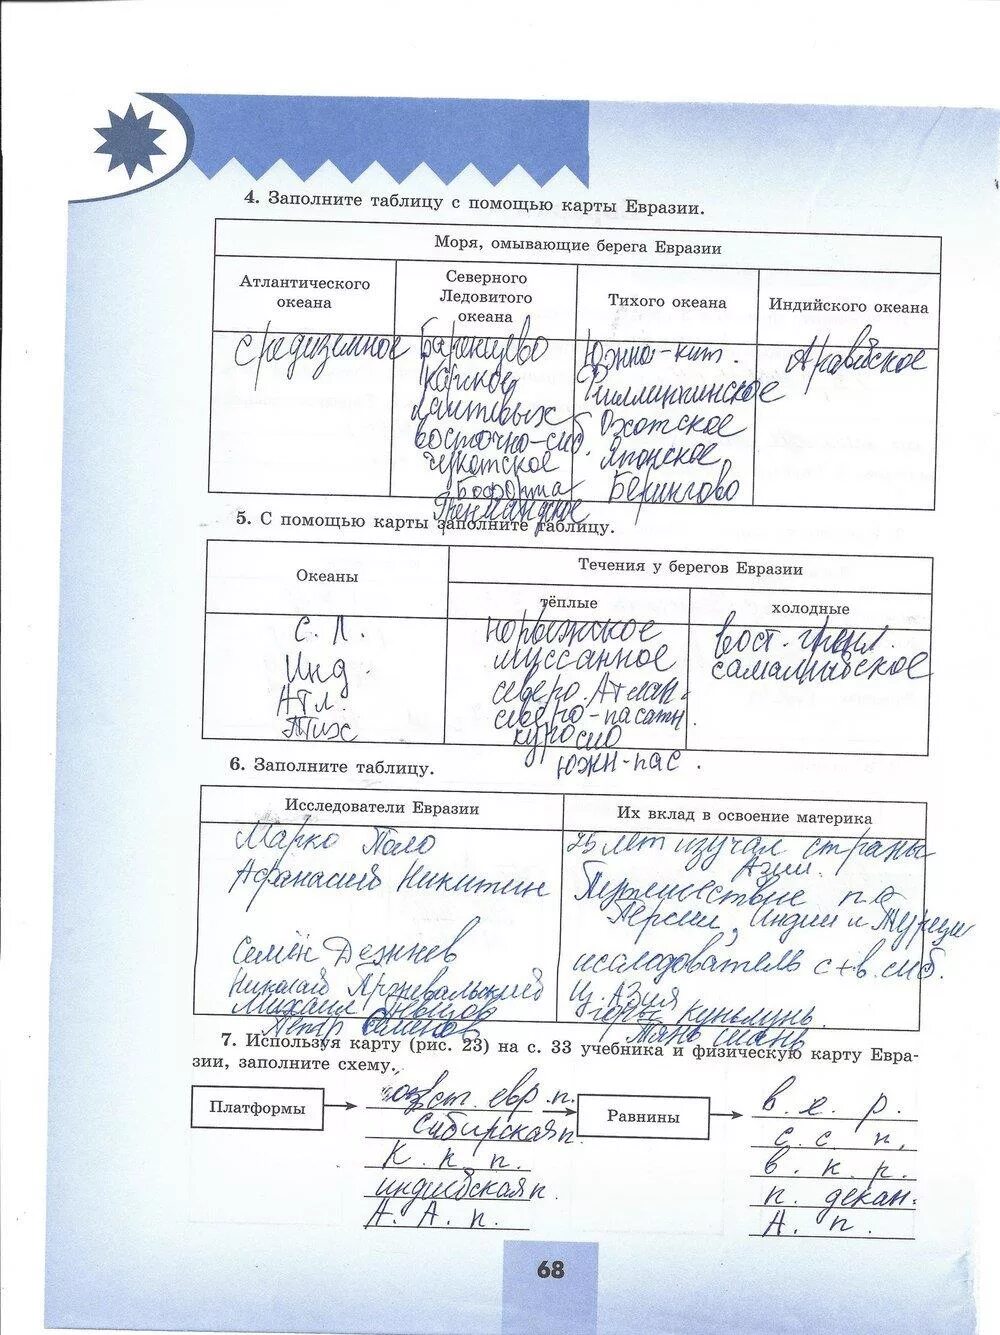 4. Заполните таблицу с помощью карты Евразии.
Моря, омывающие берега Евразии
Атлантического океана
Северного Ледовитого океана
Тихого океана
Индийского океана
средиземное
Баренцево
карское
лаптевых
восточно-сиб.
чукотское
Бофорта
Гренландское
Южно-кит.
Филлиппинское
Охотское
Японское
Берингово
Аравийское
5. С помощью карты заполните таблицу.
Океаны
Течения у берегов Евразии
тёплые
холодные
С. Л.
Инд.
Атл.
Тих
норвежское
муссанное
северо. Атлан.
северо-пасатн.
куросио
южн-пас.
вост. гренл.
самалийское
6. Заполните таблицу.
Исследователи Евразии
Их вклад в освоение материка
Марко Поло
25 лет изучал страны
Азии.
Афанасий Никитин
Путешествие по
Персии, Индии и Турции
Семён Дежнев
исследователь с+в. сиб.
Николай Пржевальский
Ц. Азия
Михаил Певцов
горы Куньлунь.
Петр Семенов
Тянь шань
7. Используя карту (рис. 23) на с. 33 учебника и физическую карту Евра-
зии, заполните схему.
Платформы
вст. евр. п.
Сибирская п.
К. п п.
индийская п.
А. А. п.
Равнины
в. е. р.
с. с п.
в. к. р.
п. декан.
А. п.
68